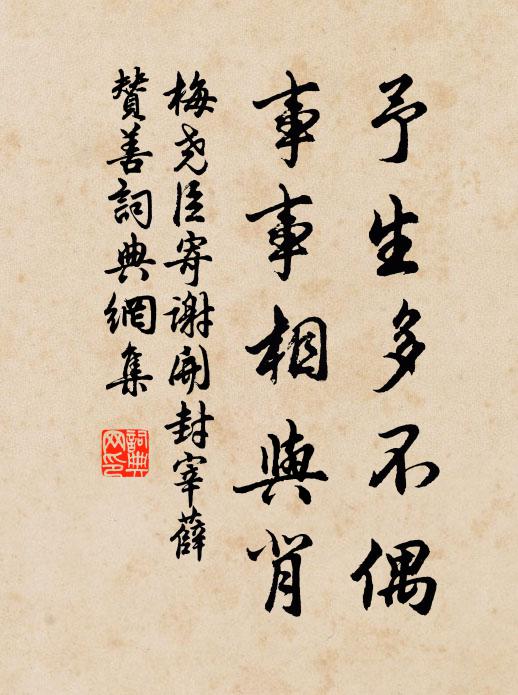 予生多不偶
事事相與背
梅尧臣寄謝開封宰薛
贊善詞典網集
詞典网印